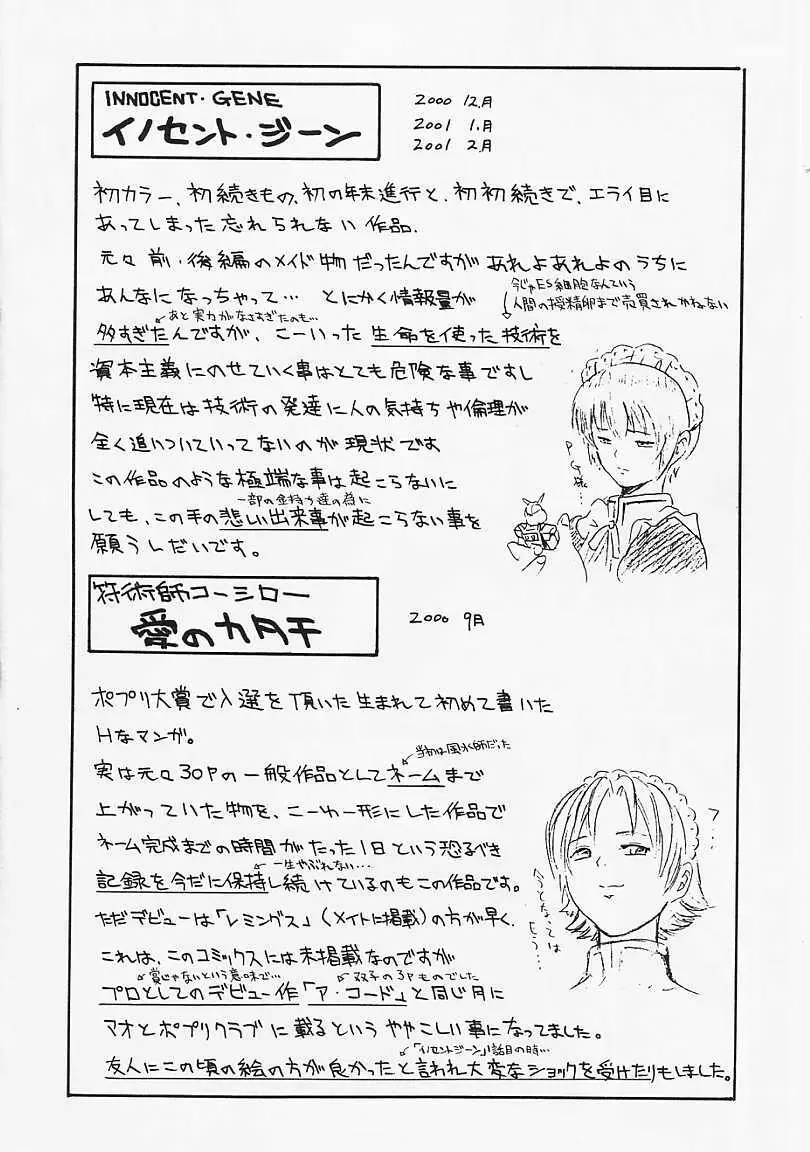 INNOCENT・GENE
イノセント・ジーン
2000 12月
2001 1月
2001 2月
初カラー、初続きもの、初の年末進行と、初初続きで、エライ目に
あってしまった忘れられない作品.
元々前・後編のメイド物だったんですがあれよあれよのうちに
今じゃES細胞なんていう
人間の授精卵まで売買されかねない
あんなになっちゃって… とにかく情報量が
あと実力がなさすぎたのも…
多すぎたんですが、こーいった生命を使った技術を
資本主義にのせていく事はとても危険な事ですし
特に現在は技術の発達に人の気持ちや倫理が
全く追いついていってないのが現状です
この作品のような極端な事は起こらないに
一部の金持ち達の為に
しても、この手の悲しい出来事が起こらない事を
願うしだいです。
P.G様…
符術師コーシロー
愛のカタチ
2000 9月
ポプリ大賞で入選を頂いた生まれて初めて書いた
Hなマンガ。
当初は風水師だった
実は元々30Pの一般作品としてネームまで
上がっていた物を、こーゆー形にした作品で
ネーム完成までの時間がたった1日という恐るべき
一生やぶれない…
記録を今だに保持し続けているのもこの作品です。
ただデビューは「レミングス」(メイトに掲載)の方が早く.
これは、このコミックスには未掲載なのですが
賞じゃないという意味で…
双子の3Pものでした
プロとしてのデビュー作「ア・コード」と同じ月に
マオとポプリクラブに載るというややこしい事になってました。
「イノセントジーン」1話目の時…
友人にこの頃の絵の方が良かったと言われ大変なショックを受けたりもしました。
フ…
今となっては
もう…